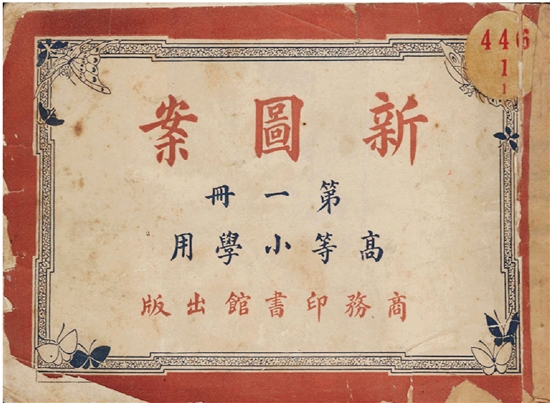 新圖案
第一冊
高等小學用
商務印書館出版
446
1
1